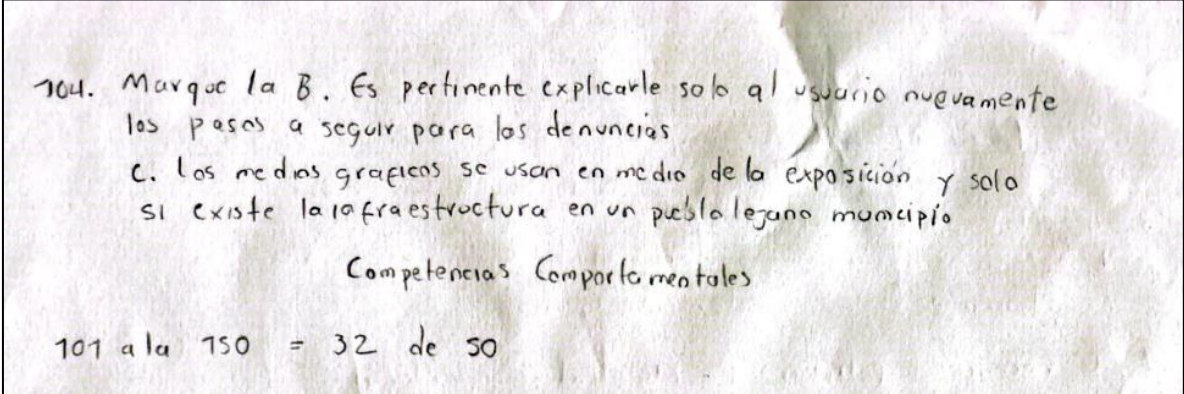 104. Marque la B. Es pertinente explicarle solo al usuario nuevamente
los pasos a seguir para las denuncias
C. los medios graficos se usan en medio de la exposición y solo
si existe la infraestructura en un pueblo lejano municipio
Competencias Comportamentales
101 a la 150 = 32 de 50